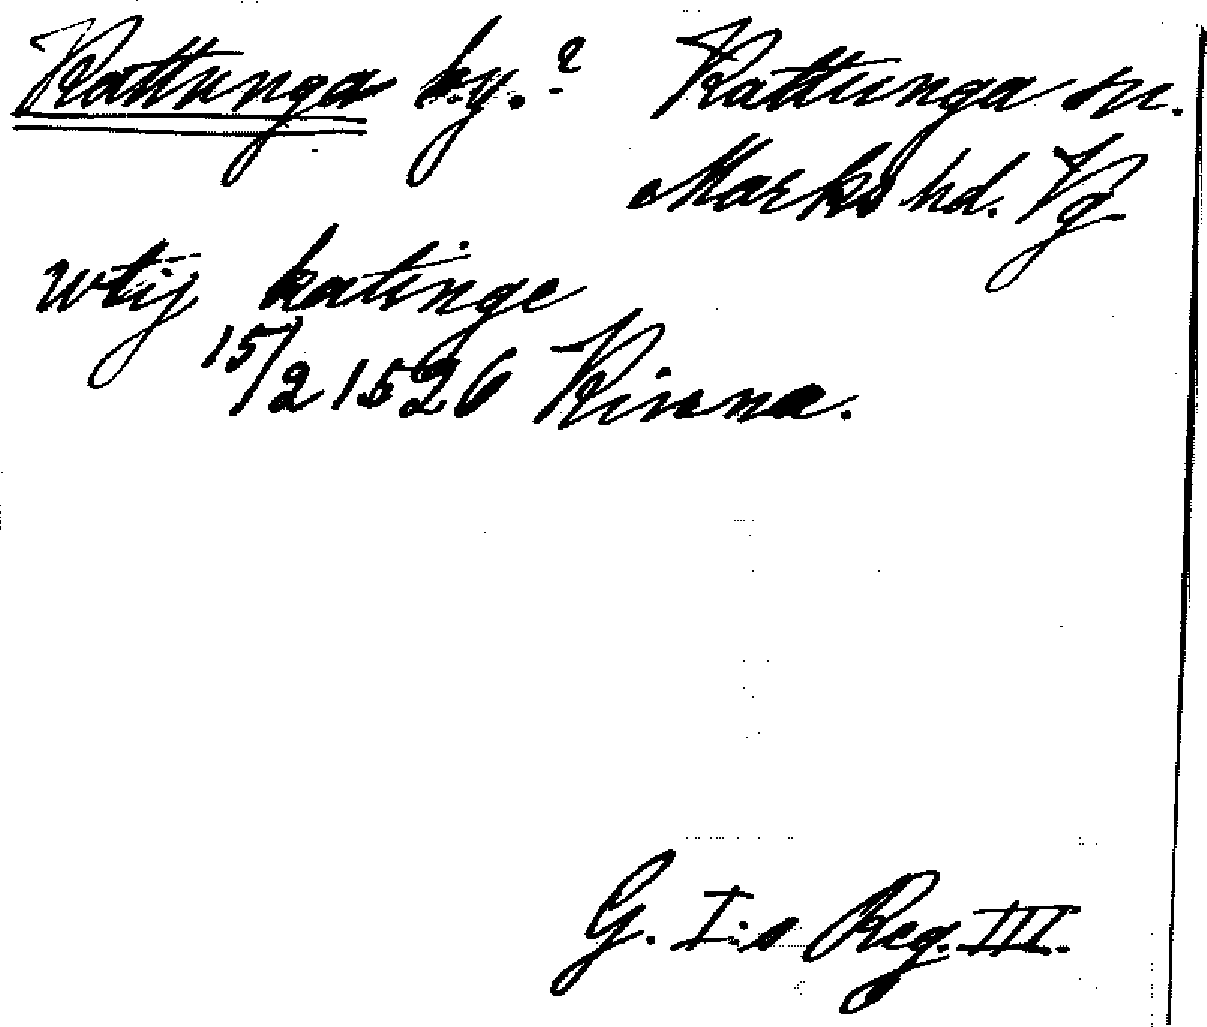 Kattunga ky.? Kattunga sn.
Marks hd. Vg
wtij katinge
15/2 1526 Kinna.
G. I:s Reg. III.